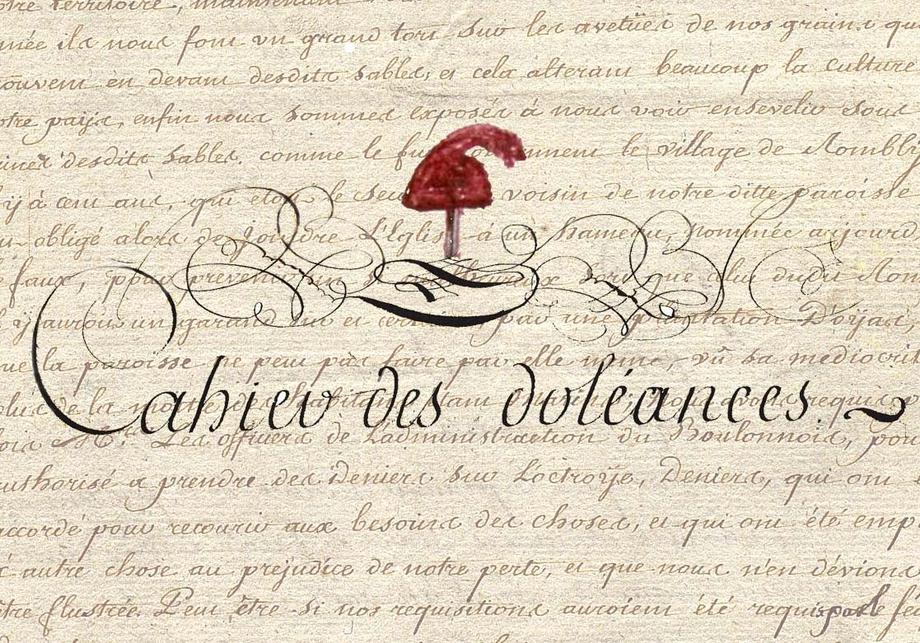 notre territoire, maintenant
née ils nous font un grand tort sur les avetües de nos grains qu
trouvent en devant desdits sables, et cela alterant beaucoup la culture
otre païs, enfin nous sommes exposés á nous voir ensevelir sous
desdits sables, comme le fu le village de Rombly
y á cent ans, qui eto le seu voisin de notre ditte paroisse
obligé alors de joindre L'Eglis á un hameau, nommée aujourd
faux, pour que
y auroit un garand sur et certain, par une plantation D'oyas,
ue la paroisse ne peut pas faire par elle même, vû sa mediocrit
plus de la
Cahier des doléances ~
Les officiers de L'administraction du Boulonnois, pour
authorisé a prendre des deniers sur L'octroÿe, Deniers, qui ont
accordé pour recourir aux besoins des choses, et qui ont été emp
autre chose au prejudice de notre perte, et que nous n'en dévions
être flustrée. Peut être si nos requisitions auroient été requis par le